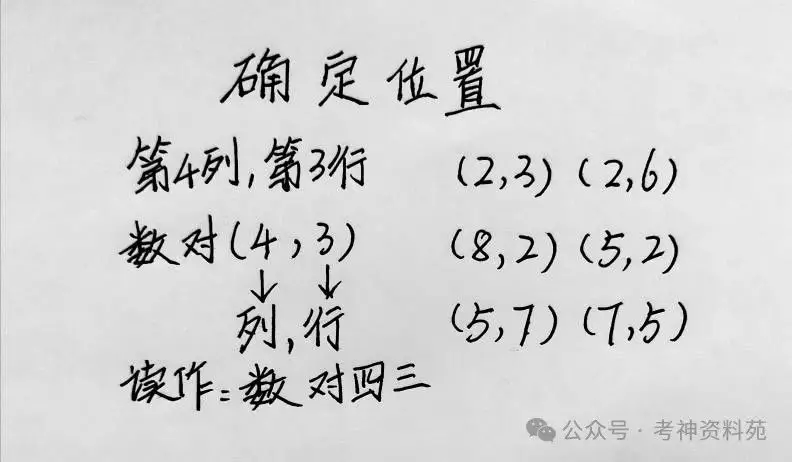 确定位置
第4列,第3行 (2,3) (2,6)
数对(4,3) (8,2) (5,2)
↓ ↓
列,行 (5,7) (7,5)
读作:数对四三
公众号·考神资料苑